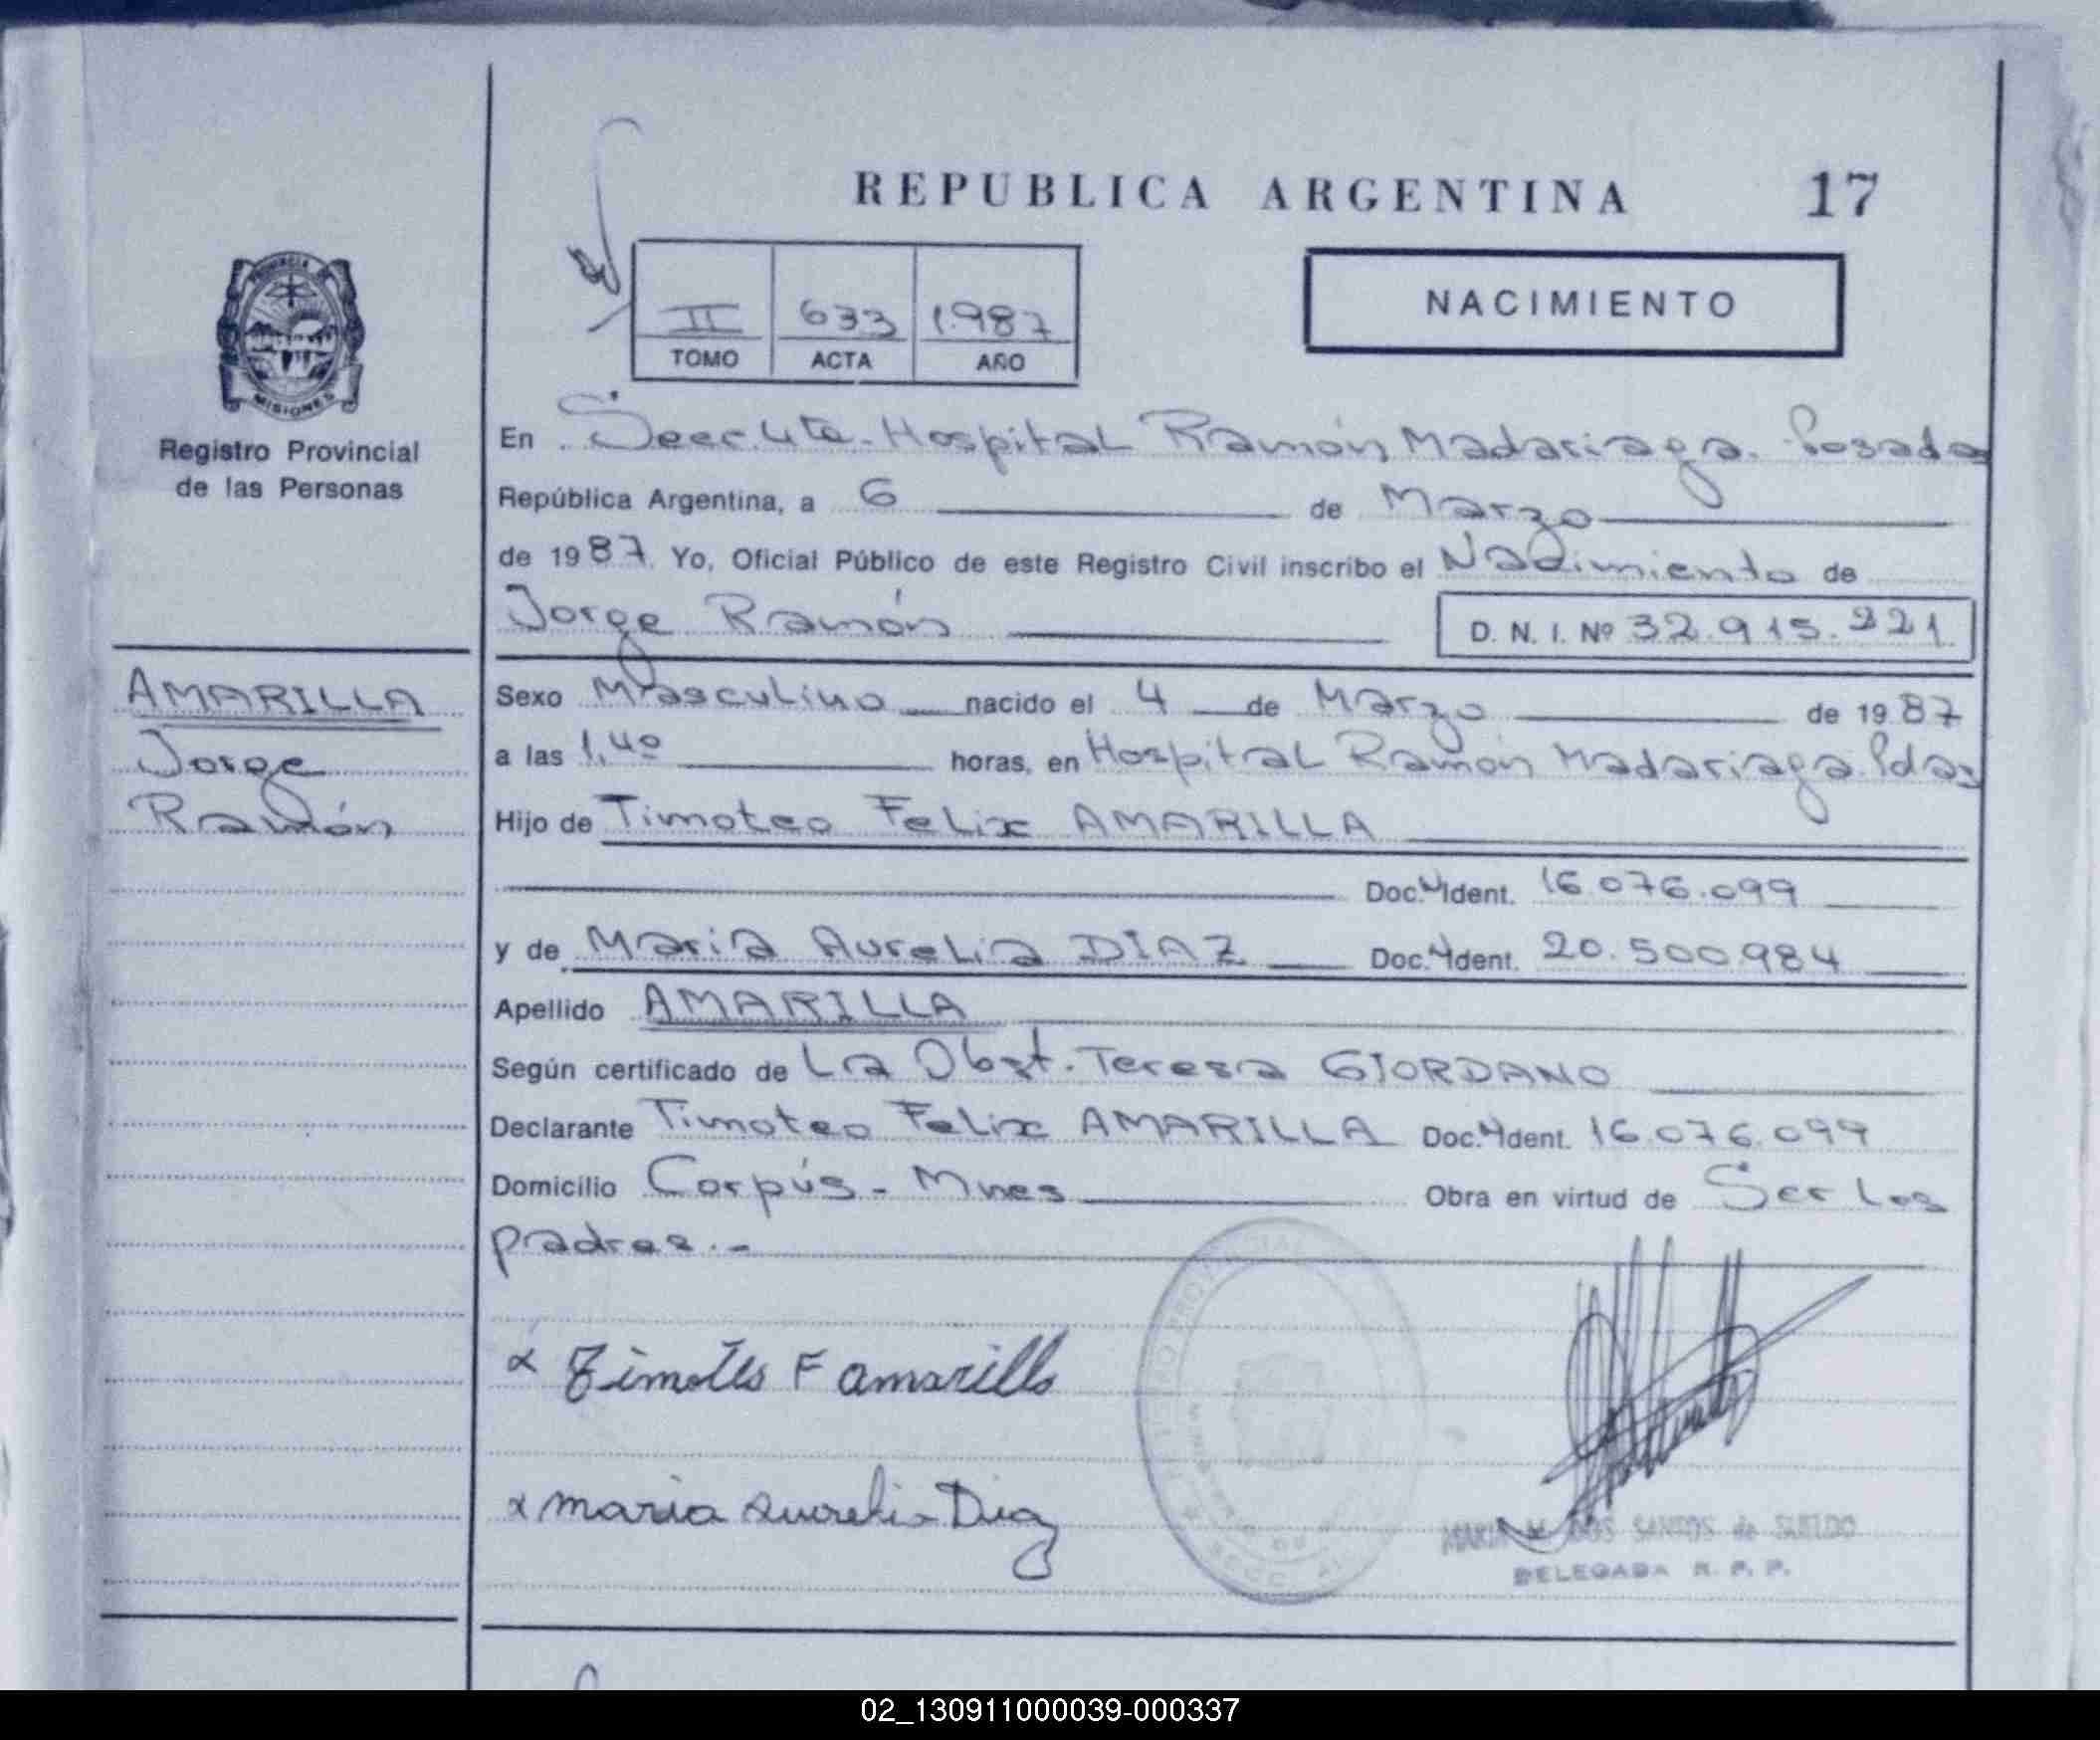 REPUBLICA ARGENTINA 17
PROVINCIA DE MISIONES
Registro Provincial
de las Personas
NACIMIENTO
II 633 1.987
TOMO ACTA AÑO
En Secc. 4ta. - Hospital Ramón Madariaga. Posadas
República Argentina, a 6 de Marzo
de 1987. Yo, Oficial Público de este Registro Civil inscribo el Nacimiento de
Jorge Ramón D. N. I. Nº 32.915.221
AMARILLA
Jorge
Ramón
Sexo Masculino nacido el 4 de Marzo de 1987
a las 1,40 horas, en Hospital Ramón Madariaga. Pdas
Hijo de Timoteo Felix AMARILLA
Doc. Ident. 16.076.099
y de Maria Aurelia DIAZ Doc. Ident. 20.500.984
Apellido AMARILLA
Según certificado de La Obst. Teresa GIORDANO
Declarante Timoteo Felix AMARILLA Doc. Ident. 16.076.099
Domicilio Corpús - Mnes Obra en virtud de Ser los
padres. -
x Timoteo F amarilla
x maria Aurelia Diaz
MARIA M. DOS SANTOS de SUELDO
DELEGADA R. P. P.
02_130911000039-000337